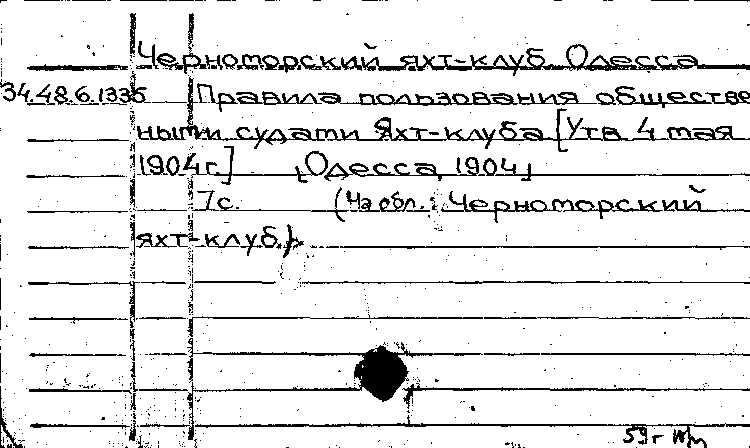 Черноморский яхт-клуб. Одесса
34.48.6.1335 Правила пользования обществен
ными судами Яхт-клуба [Утв. 4 мая
1904г.] [Одесса, 1904]
7с. (На обл.: Черноморский
яхт-клуб).
59г